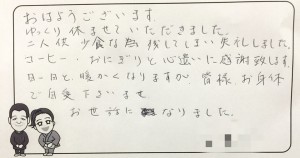 おはようございます。
ゆっくり休ませていただきました。
二人供少食な為残してしまい失礼しました。
コーヒー・おにぎりと心遣いに感謝致します。
日一日と、暖かくなりますが、皆様お身体
ご自愛下さいませ
お世話になりました。